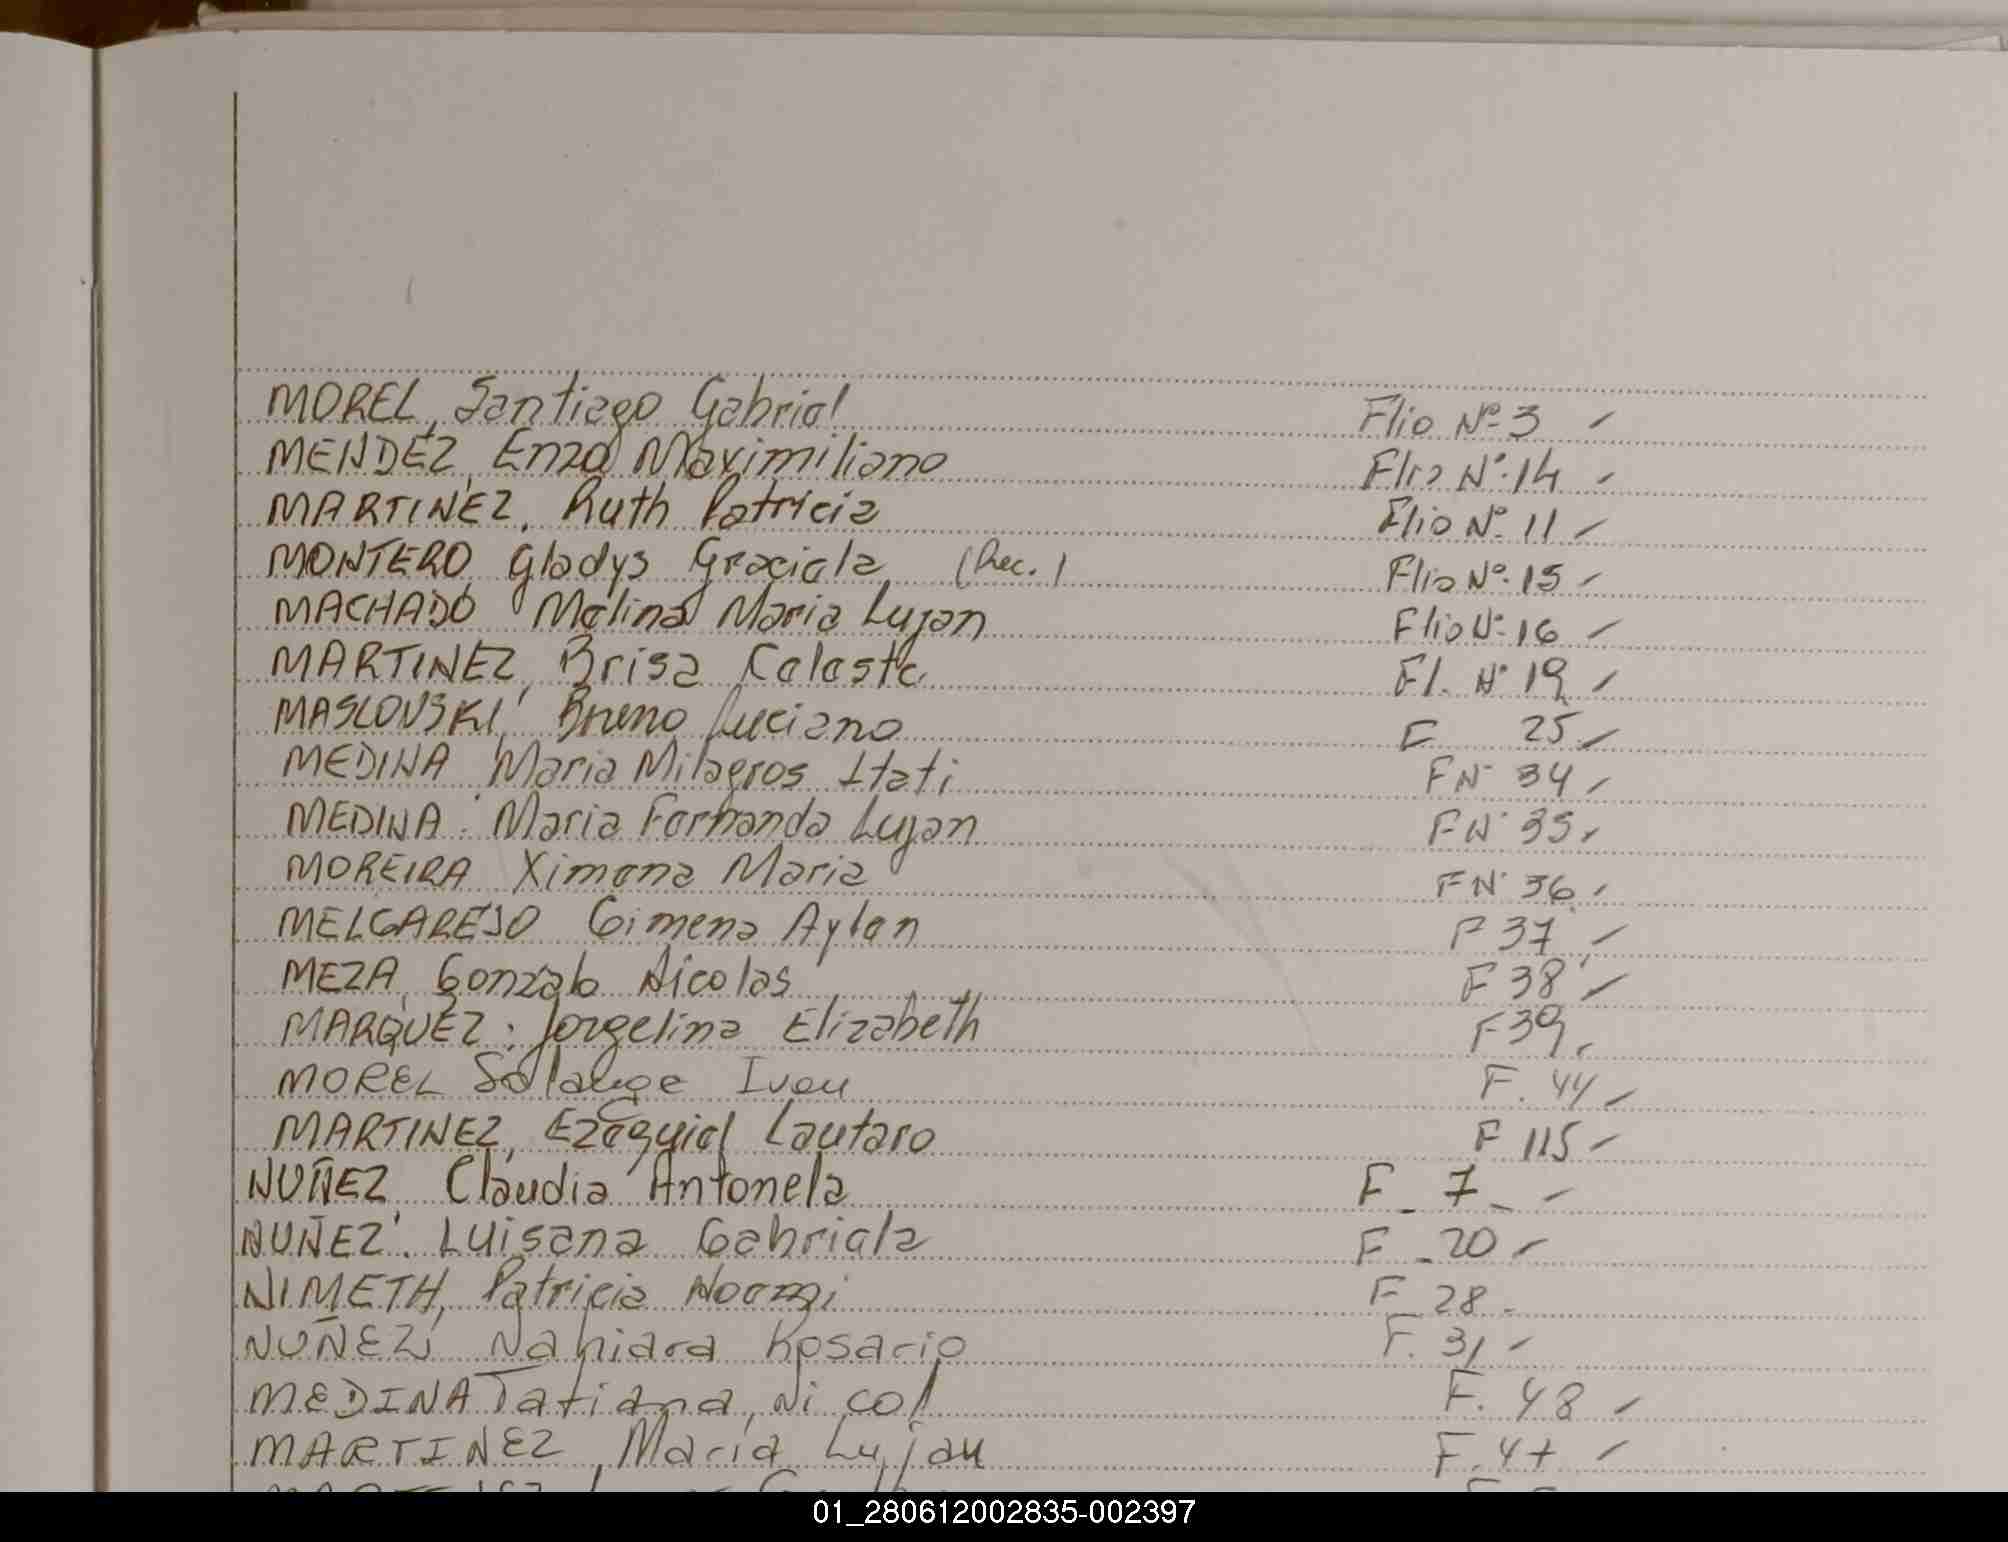 MOREL, Santiago Gabriel Flio Nº 3
MENDEZ, Enzo Maximiliano Flio Nº 14
MARTINEZ, Ruth Patricia Flio Nº 11
MONTERO, Gladys Graciela (Rec.) Flio Nº 15
MACHADO Melina Maria Lujan Flio Nº 16
MARTINEZ, Brisa Celeste Fl. Nº 19
MASLOVSKI, Bruno Luciano F 25
MEDINA Maria Milagros Itati F Nº 34
MEDINA: Maria Fernanda Lujan F Nº 35
MOREIRA Ximena Maria F Nº 36
MELGAREJO Gimena Aylen F 37
MEZA, Gonzalo Nicolas F 38
MARQUEZ: Jorgelina Elizabeth F 39
MOREL Solange Ivon F. 44
MARTINEZ, Ezequiel Lautaro F 115
NUÑEZ Claudia Antonela F_ 7_
NUÑEZ. Luisana Gabriela F _20
NIMETH, Patricia Noemi F_28
NUÑEZ, Nahiara Rosario F. 31
MEDINA Tatiana, Nicol F. 48
MARTINEZ, Maria Lujan F.47
01_280612002835-002397